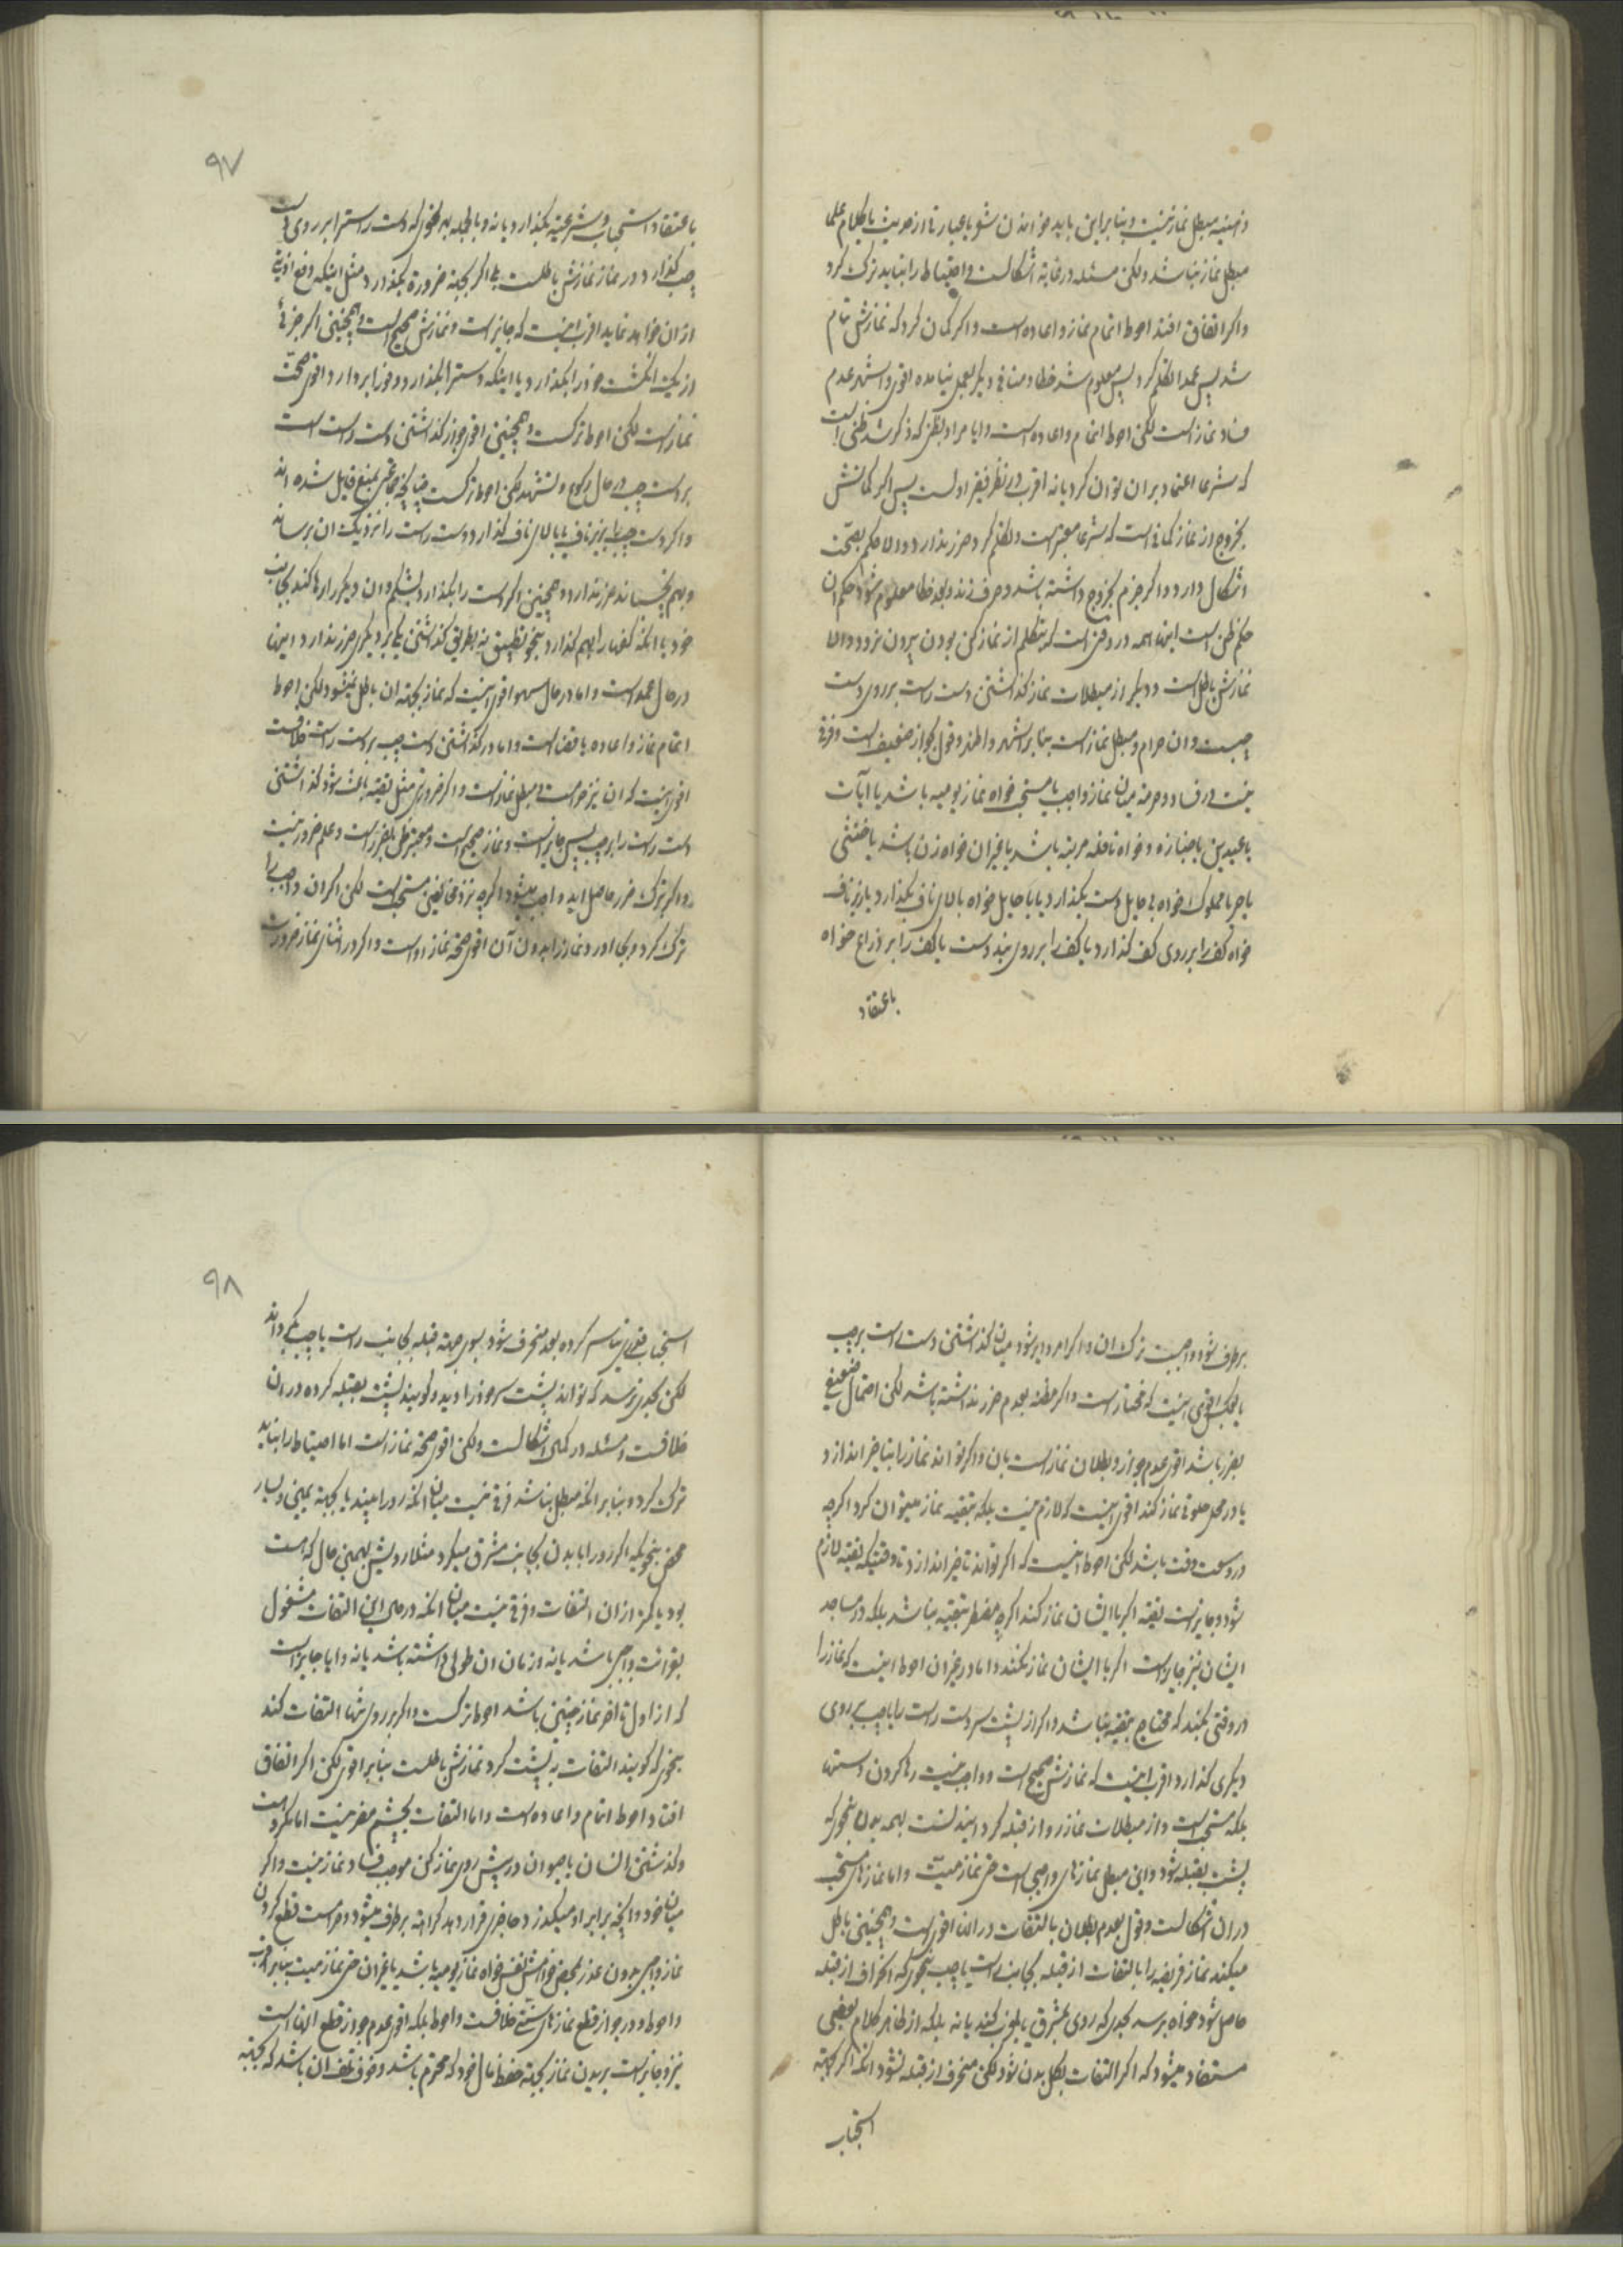 مبطل نماز نباشد ولکن مسئله در غایة اشکالست و احتیاط را نباید ترک کرد
و اکر اتفاق افتد احوط اتمام نماز و اعاده است و اکر کمان کرد که نمازش تمام
شد پس عمدا تکلم کرد پس معلوم شد خطا و منافی دیکر بعمل نیامده اقوی و اشهر عدم
فساد نماز است لکن احوط اتمام و اعاده است و ایا مراد بظن که ذکر شد ظنی است
که شرعا اعتماد بران توان کرد یا نه اقرب در نظر فقیر اولست پس اکر کمانش
بخروج از نماز کمانی است که شرعا معتبر است و تکلم کرد ضرر ندارد و الا حکم بصحّت
اشکال دارد و اکر جزم بخروج داشته باشد و حرف زند و بعد خطا معلوم شود حکم ان
حکم ظن است اینها همه در وقتی است که بتکلم از نماز کن بودن بیرون نرود و الا
نمازش باطل است و دیکر از مبطلات نماز کذاشتن دست راست بر روی دست
چپست و ان حرام و مبطل نماز است بنا بر اشهر و اظهر و قول بجواز ضعیف است و فرقی
نیست در فساد و حرمة میان نماز واجب یا مستحبی خواه نماز یومیه باشد یا آیات
یا عیدین یا جنازه و خواه نافله مرتبه باشد یا غیر ان خواه زن باشد یا خنثی
یا حر یا مملوک خواه بی حایل دست بکذارد یا با حایل خواه بالای ناف بکذارد یا زیر ناف
خواه کف را بر روی کف کذارد یا کف را بر روی بند دست یا کف را بر ذراع خواه
باعتقاد
۹۷
باعتقاد استحباب و شرعیة بکذارد یا نه و بالجمله بهر نحوی که دست راسترا بر روی دست
چپ کذارد در نماز نمازش باطلست بلی اکر بجهة ضرورة بکذارد مثل اینکه دفع اذیتی
از ان خواهد نماید اقرب اینست که جایز است و نمازش صحیح است و همچنین اکر جزئی
از یک انکشت خود را بکذارد یا اینکه دسترا بکذارد و فورا بردارد اقوی صحّت
نماز است لکن احوط ترکست و همچنین اقوی جواز کذاشتن دست راست است
بر دست چپ در حال رکوع و تشهد لکن احوط ترکست چنانچه جماعتی بمنع قایل شده اند
و اکر دست چپ را بر زیر ناف یا بالای ناف کذارد و دست راست را نزدیک ان برساند
و بهم نچسباند ضرر ندارد و همچنین اکر دست را بکذارد بشکم و ان دیکر را رها کند بجانب
خود یا انکه کفها را بهم کذارد بنحو تطبیق نه بطریق کذاشتن یکی بر دیکری ضرر ندارد و اینها
در حال عمد است و اما در حال سهو اقوی اینست که نماز بجهة ان باطل نمیشود لکن احوط
اتمام نماز و اعاده یا قضا است و اما در کذاشتن دست چپ بر دست راست خلافست
اقوی اینست که ان نیز حرام است و مبطل نماز است و اکر ضرورتی مثل تقیه باعث شود کذاشتن
دست راست را بر چپ پس جایز است و نماز صحیح است و معتبر ظن بضرر است و علم ضرور نیست
و اکر بترک ضرر حاصل اید واجب میشود اکرچه نزد مخالفین مستحب است لکن اکر ان واجب را
ترک کرد و بجا اورد نماز را بدون آن اقوی صحة نماز او است و اکر در اثنای نماز ضرورت
برطرف شود واجبست ترک ان و اکر امر دایر شود میان کذاشتن دست راست بر چپ
یا بعکس اقوی اینست که مختار است و اکر مظنه بعدم ضرر نداشته باشد لکن احتمال ضعیفی
بضرر باشد اقوی عدم جواز و بطلان نماز است بان و اکر تواند نماز را بتاخیر اندازد
یا در محل خلوتی نماز کند اقوی اینست که لازم نیست بلکه بتقیه نماز میتوان کرد اکرچه
در وسعت وقت باشد لکن احوط اینست که اکر تواند تاخیر اندازد تا وقتیکه تقیه لازم
شود و جایز است تقیه اکر با ایشان نماز کند اکرچه مضطر بتقیه نباشد بلکه در مساجد
ایشان نیز جایز است اکر با ایشان نماز نکند و اما در غیر ان احوط اینست که نماز را
در وقتی بکند که محتاج بتقیه نباشد و اکر از پشت سر دست راست را یا چپ بر روی
دیکری کذارد اقرب اینست که نمازش صحیح است و واجب نیست رها کردن دستها
بلکه مستحب است و از مبطلات نماز رو از قبله کردانیدنست بهمه بدن بنحوی که
پشت بقبله شود و این مبطل نمازهای واجبی است حتی نماز میّت و اما نمازهای مستحب
در ان اشکالست و قول بعدم بطلان بالتفات در انها اقوی است و همچنین باطل
میکند نماز فریضه را بالتفات از قبله بجانب راست یا چپ بنحوی که انحراف از قبله
حاصل شود خواه برسد بحدی که روی بمشرق یا مغرب کند یا نه بلکه از ظاهر کلام بعضی
مستفاد میشود که اکر التفات بکل بدن شود لکن منحرف از قبله نشود انکه اکر بجهة
استحباب
۹۸
استحباب قدری تیاسر کرده بعد منحرف شود بسوی جهة قبله بجانب راست یا چپ بکرداند
لکن بحدی نرسد که تواند پشت سر خود را دید و کویند پشت بقبله کرده در ان
خلافست و مسئله در کمال اشکالست ولکن اقوی صحة نماز است اما احتیاط را نباید
ترک کرد و بنا بر انکه مبطل نباشد فرقی نیست میان انکه رو را ببیند یا بجهة یمین و یسار
محض بنحویکه اکر رو را با بدن بجانب مشرق میکرد مثلا رویش بهمین حال که هست
بود یا کمتر از ان التفات و فرقی نیست میان انکه در حال این التفات مشغول
بقرائت واجبی باشد یا نه و زمان ان طولی داشته باشد یا نه و ایا جایز است
که از اول تا اخر نماز چنین باشد احوط ترکست و اکر بروی تنها التفات کند
بنحوی که کویند التفات به پشت کرد نمازش باطلست بنا بر اقوی لکن اکر اتفاق
افتاد احوط اتمام و اعاده است و اما التفات بچشم مضر نیست اما مکروهست
و کذشتن انسان یا حیوان در پیش روی نماز کن موجب فساد نماز نیست و اکر
میان خود و انچه برابر او میکذرد حاجزی قرار دهد کراهة برطرف میشود و حرامست قطع کردن
نماز واجبی بدون عذر بمحض خواهش نفس خواه نماز یومیه باشد یا غیر ان حتی نماز میت بنا بر اقرب
و احوط و در جواز قطع نمازهای سنّتی خلافست و احوط بلکه اقوی عدم جواز قطع انها است
نیز و جایز است بریدن نماز بجهة حفظ مال خود که محترم باشد و خوف تلف ان باشد که بجهة